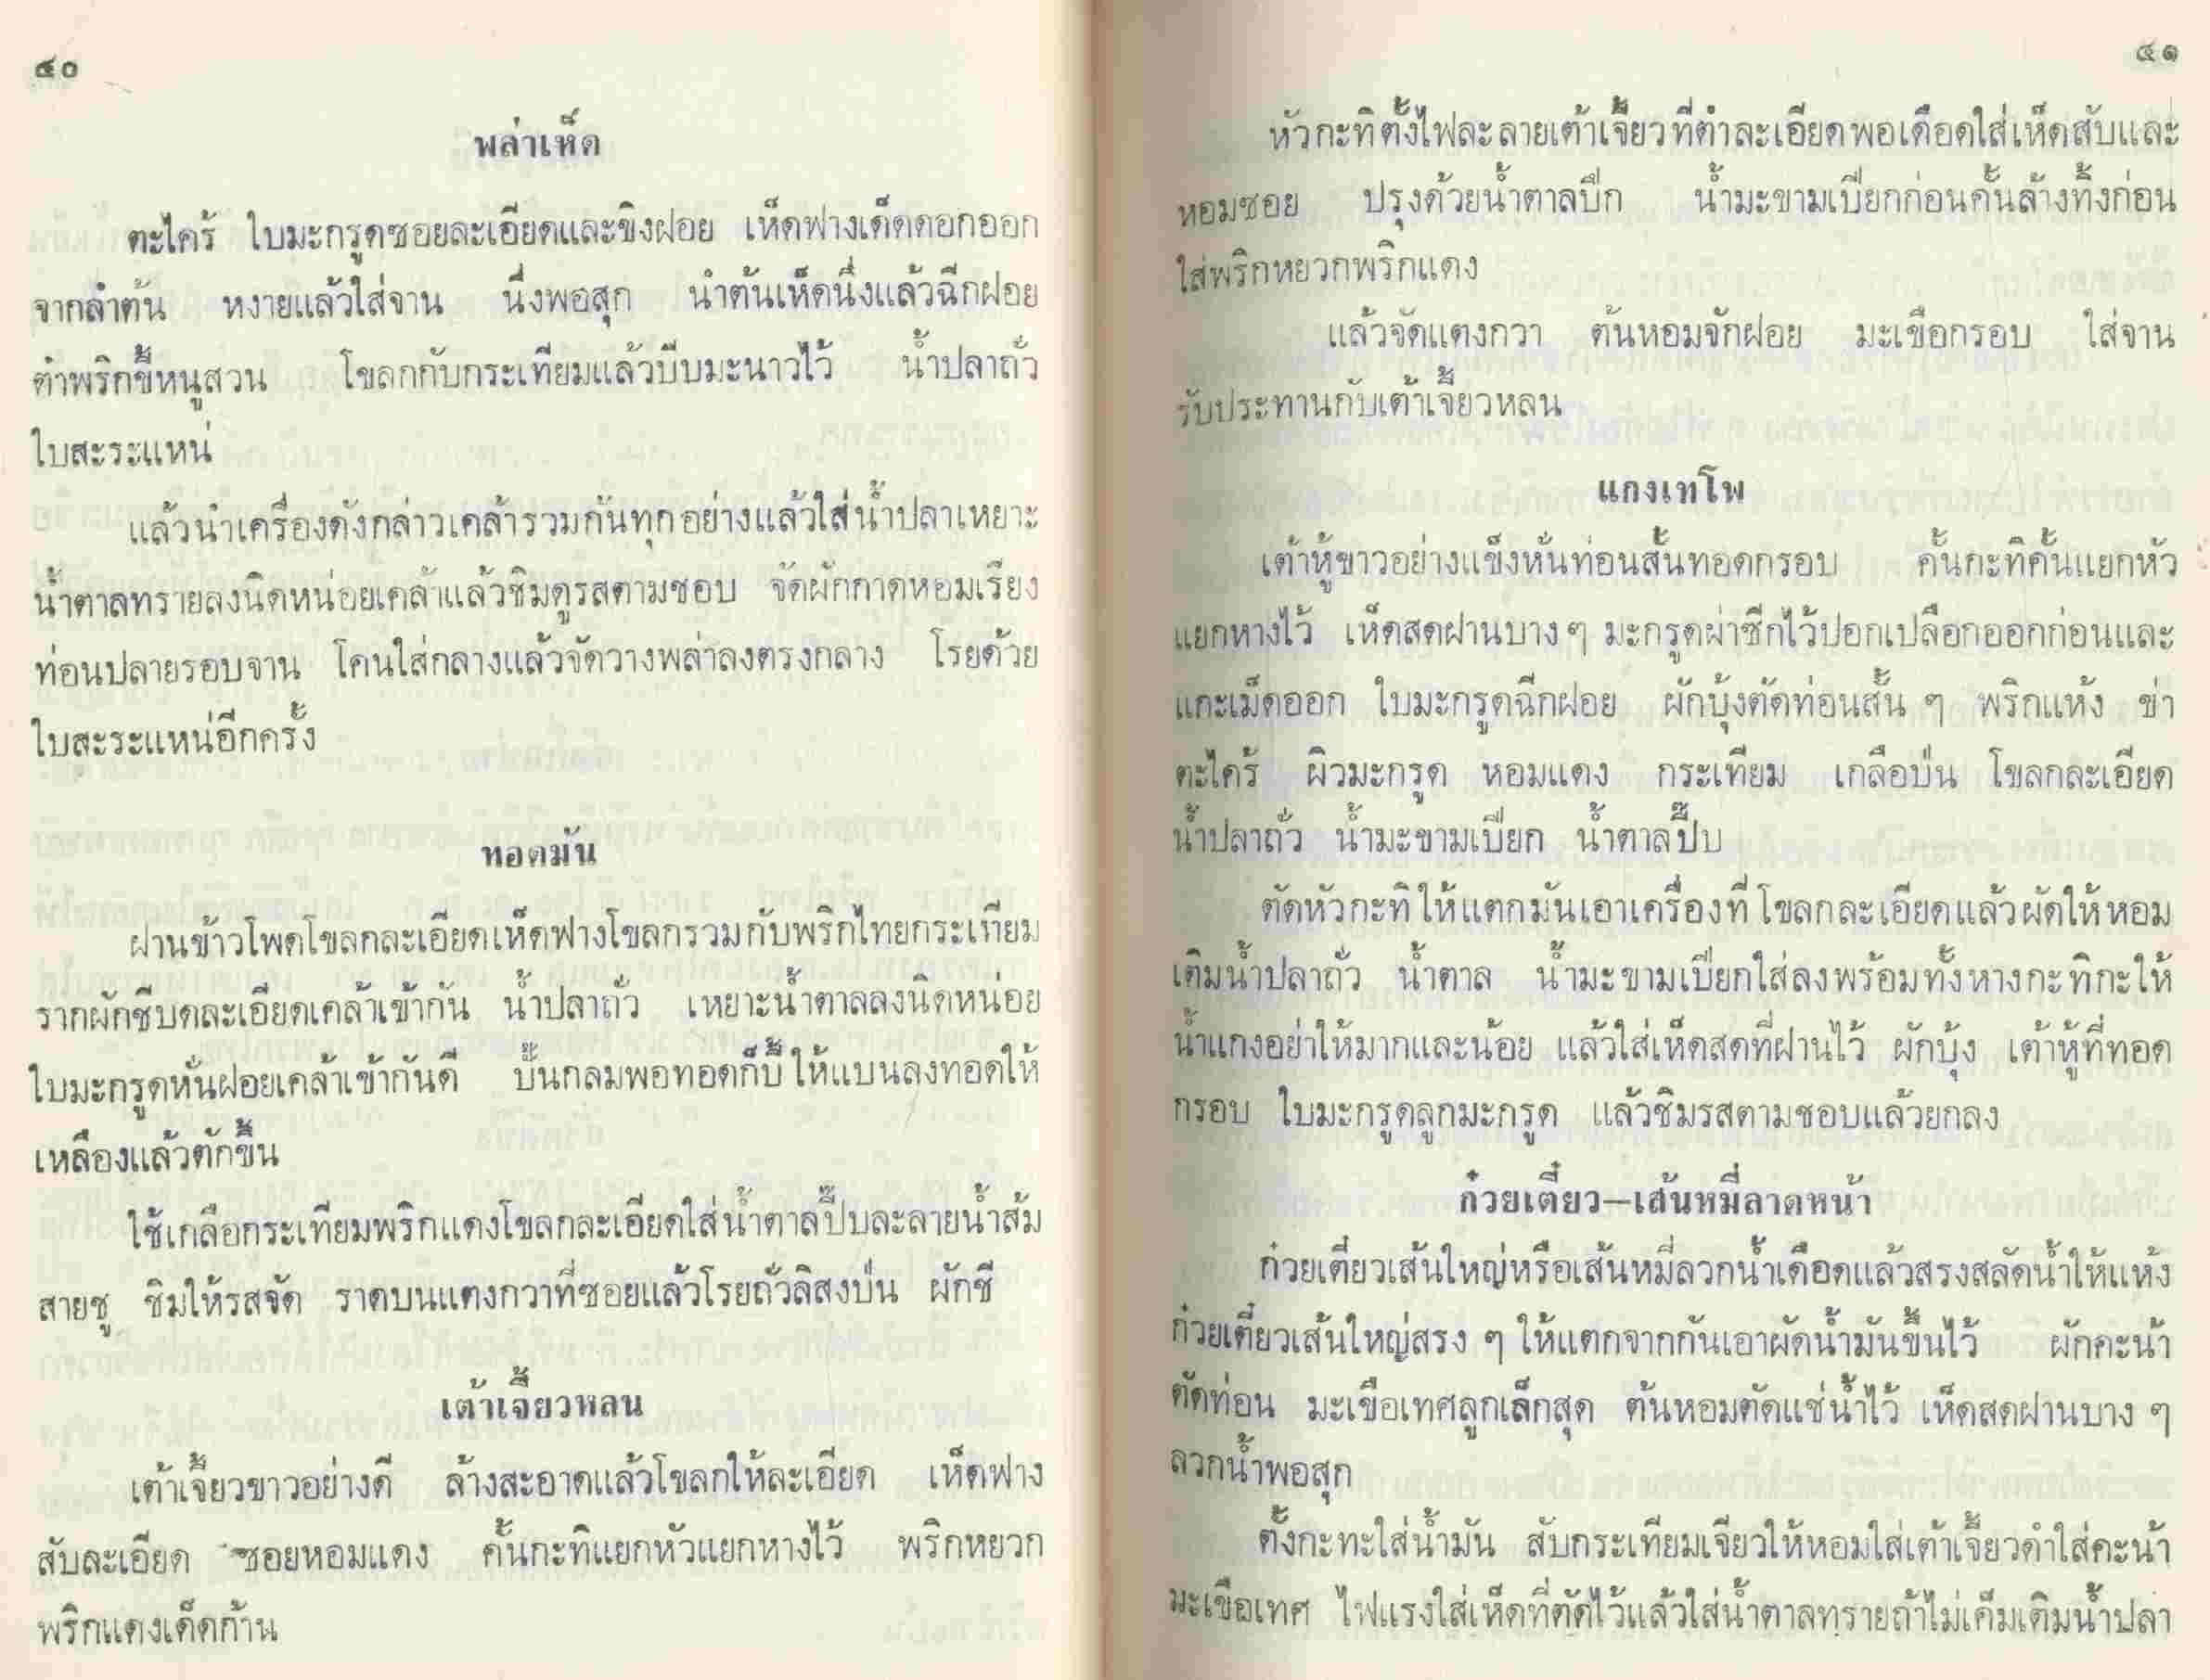 ๔๐
พล่าเห็ด
ตะไคร้ ใบมะกรูดซอยละเอียดและขิงฝอย เห็ดฟางเด็ดดอกออก
จากลำต้น หงายแล้วใส่จาน นึ่งพอสุก นำต้นเห็ดนึ่งแล้วฉีกฝอย
ตำพริกขี้หนูสวน โขลกกับกระเทียมแล้วบีบมะนาวไว้ น้ำปลาถั่ว
ใบสะระแหน่
แล้วนำเครื่องดังกล่าวเคล้ารวมกันทุกอย่างแล้วใส่น้ำปลาเหยาะ
น้ำตาลทรายลงนิดหน่อยเคล้าแล้วชิมดูรสตามชอบ จัดผักกาดหอมเรียง
ท่อนปลายรอบจาน โคนใส่กลางแล้วจัดวางพล่าลงตรงกลาง โรยด้วย
ใบสะระแหน่อีกครั้ง
ทอดมัน
ฝานข้าวโพดโขลกละเอียดเห็ดฟางโขลกรวมกับพริกไทยกระเทียม
รากผักชีบดละเอียดเคล้าเข้ากัน น้ำปลาถั่ว เหยาะน้ำตาลลงนิดหน่อย
ใบมะกรูดหั่นฝอยเคล้าเข้ากันดี ปั้นกลมพอทอดก็บี้ให้แบนลงทอดให้
เหลืองแล้วตักขึ้น
ใช้เกลือกระเทียมพริกแดงโขลกละเอียดใส่น้ำตาลปี๊บละลายน้ำส้ม
สายชู ชิมให้รสจัด ราดบนแตงกวาที่ซอยแล้วโรยถั่วลิสงป่น ผักชี
เต้าเจี้ยวหลน
เต้าเจี้ยวขาวอย่างดี ล้างสะอาดแล้วโขลกให้ละเอียด เห็ดฟาง
สับละเอียด ซอยหอมแดง คั้นกะทิแยกหัวแยกหางไว้ พริกหยวก
พริกแดงเด็ดก้าน
๔๑
หัวกะทิตั้งไฟละลายเต้าเจี้ยวที่ตำละเอียดพอเดือดใส่เห็ดสับและ
หอมซอย ปรุงด้วยน้ำตาลปึก น้ำมะขามเปียกก่อนคั้นล้างทิ้งก่อน
ใส่พริกหยวกพริกแดง
แล้วจัดแตงกวา ต้นหอมจักฝอย มะเขือกรอบ ใส่จาน
รับประทานกับเต้าเจี้ยวหลน
แกงเทโพ
เต้าหู้ขาวอย่างแข็งหั่นท่อนสั้นทอดกรอบ คั้นกะทิคั้นแยกหัว
แยกหางไว้ เห็ดสดฝานบางๆ มะกรูดผ่าซีกไว้ปอกเปลือกออกก่อนและ
แกะเม็ดออก ใบมะกรูดฉีกฝอย ผักบุ้งตัดท่อนสั้น ๆ พริกแห้ง ข่า
ตะไคร้ ผิวมะกรูด หอมแดง กระเทียม เกลือป่น โขลกละเอียด
น้ำปลาถั่ว น้ำมะขามเปียก น้ำตาลปี๊บ
ตัดหัวกะทิให้แตกมันเอาเครื่องที่โขลกละเอียดแล้วผัดให้หอม
เติมน้ำปลาถั่ว น้ำตาล น้ำมะขามเปียกใส่ลงพร้อมทั้งหางกะทิกะให้
น้ำแกงอย่าให้มากและน้อย แล้วใส่เห็ดสดที่ฝานไว้ ผักบุ้ง เต้าหู้ที่ทอด
กรอบ ใบมะกรูดลูกมะกรูด แล้วชิมรสตามชอบแล้วยกลง
ก๋วยเตี๋ยว—เส้นหมี่ลาดหน้า
ก๋วยเตี๋ยวเส้นใหญ่หรือเส้นหมี่ลวกน้ำเดือดแล้วสรงสลัดน้ำให้แห้ง
ก๋วยเตี๋ยวเส้นใหญ่สรง ๆ ให้แตกจากกันเอาผัดน้ำมันขึ้นไว้ ผักคะน้า
ตัดท่อน มะเขือเทศลูกเล็กสุด ต้นหอมตัดแช่น้ำไว้ เห็ดสดฝานบาง ๆ
ลวกน้ำพอสุก
ตั้งกะทะใส่น้ำมัน สับกระเทียมเจียวให้หอมใส่เต้าเจี้ยวดำใส่คะน้า
มะเขือเทศ ไฟแรงใส่เห็ดที่ตัดไว้แล้วใส่น้ำตาลทรายถ้าไม่เค็มเติมน้ำปลา